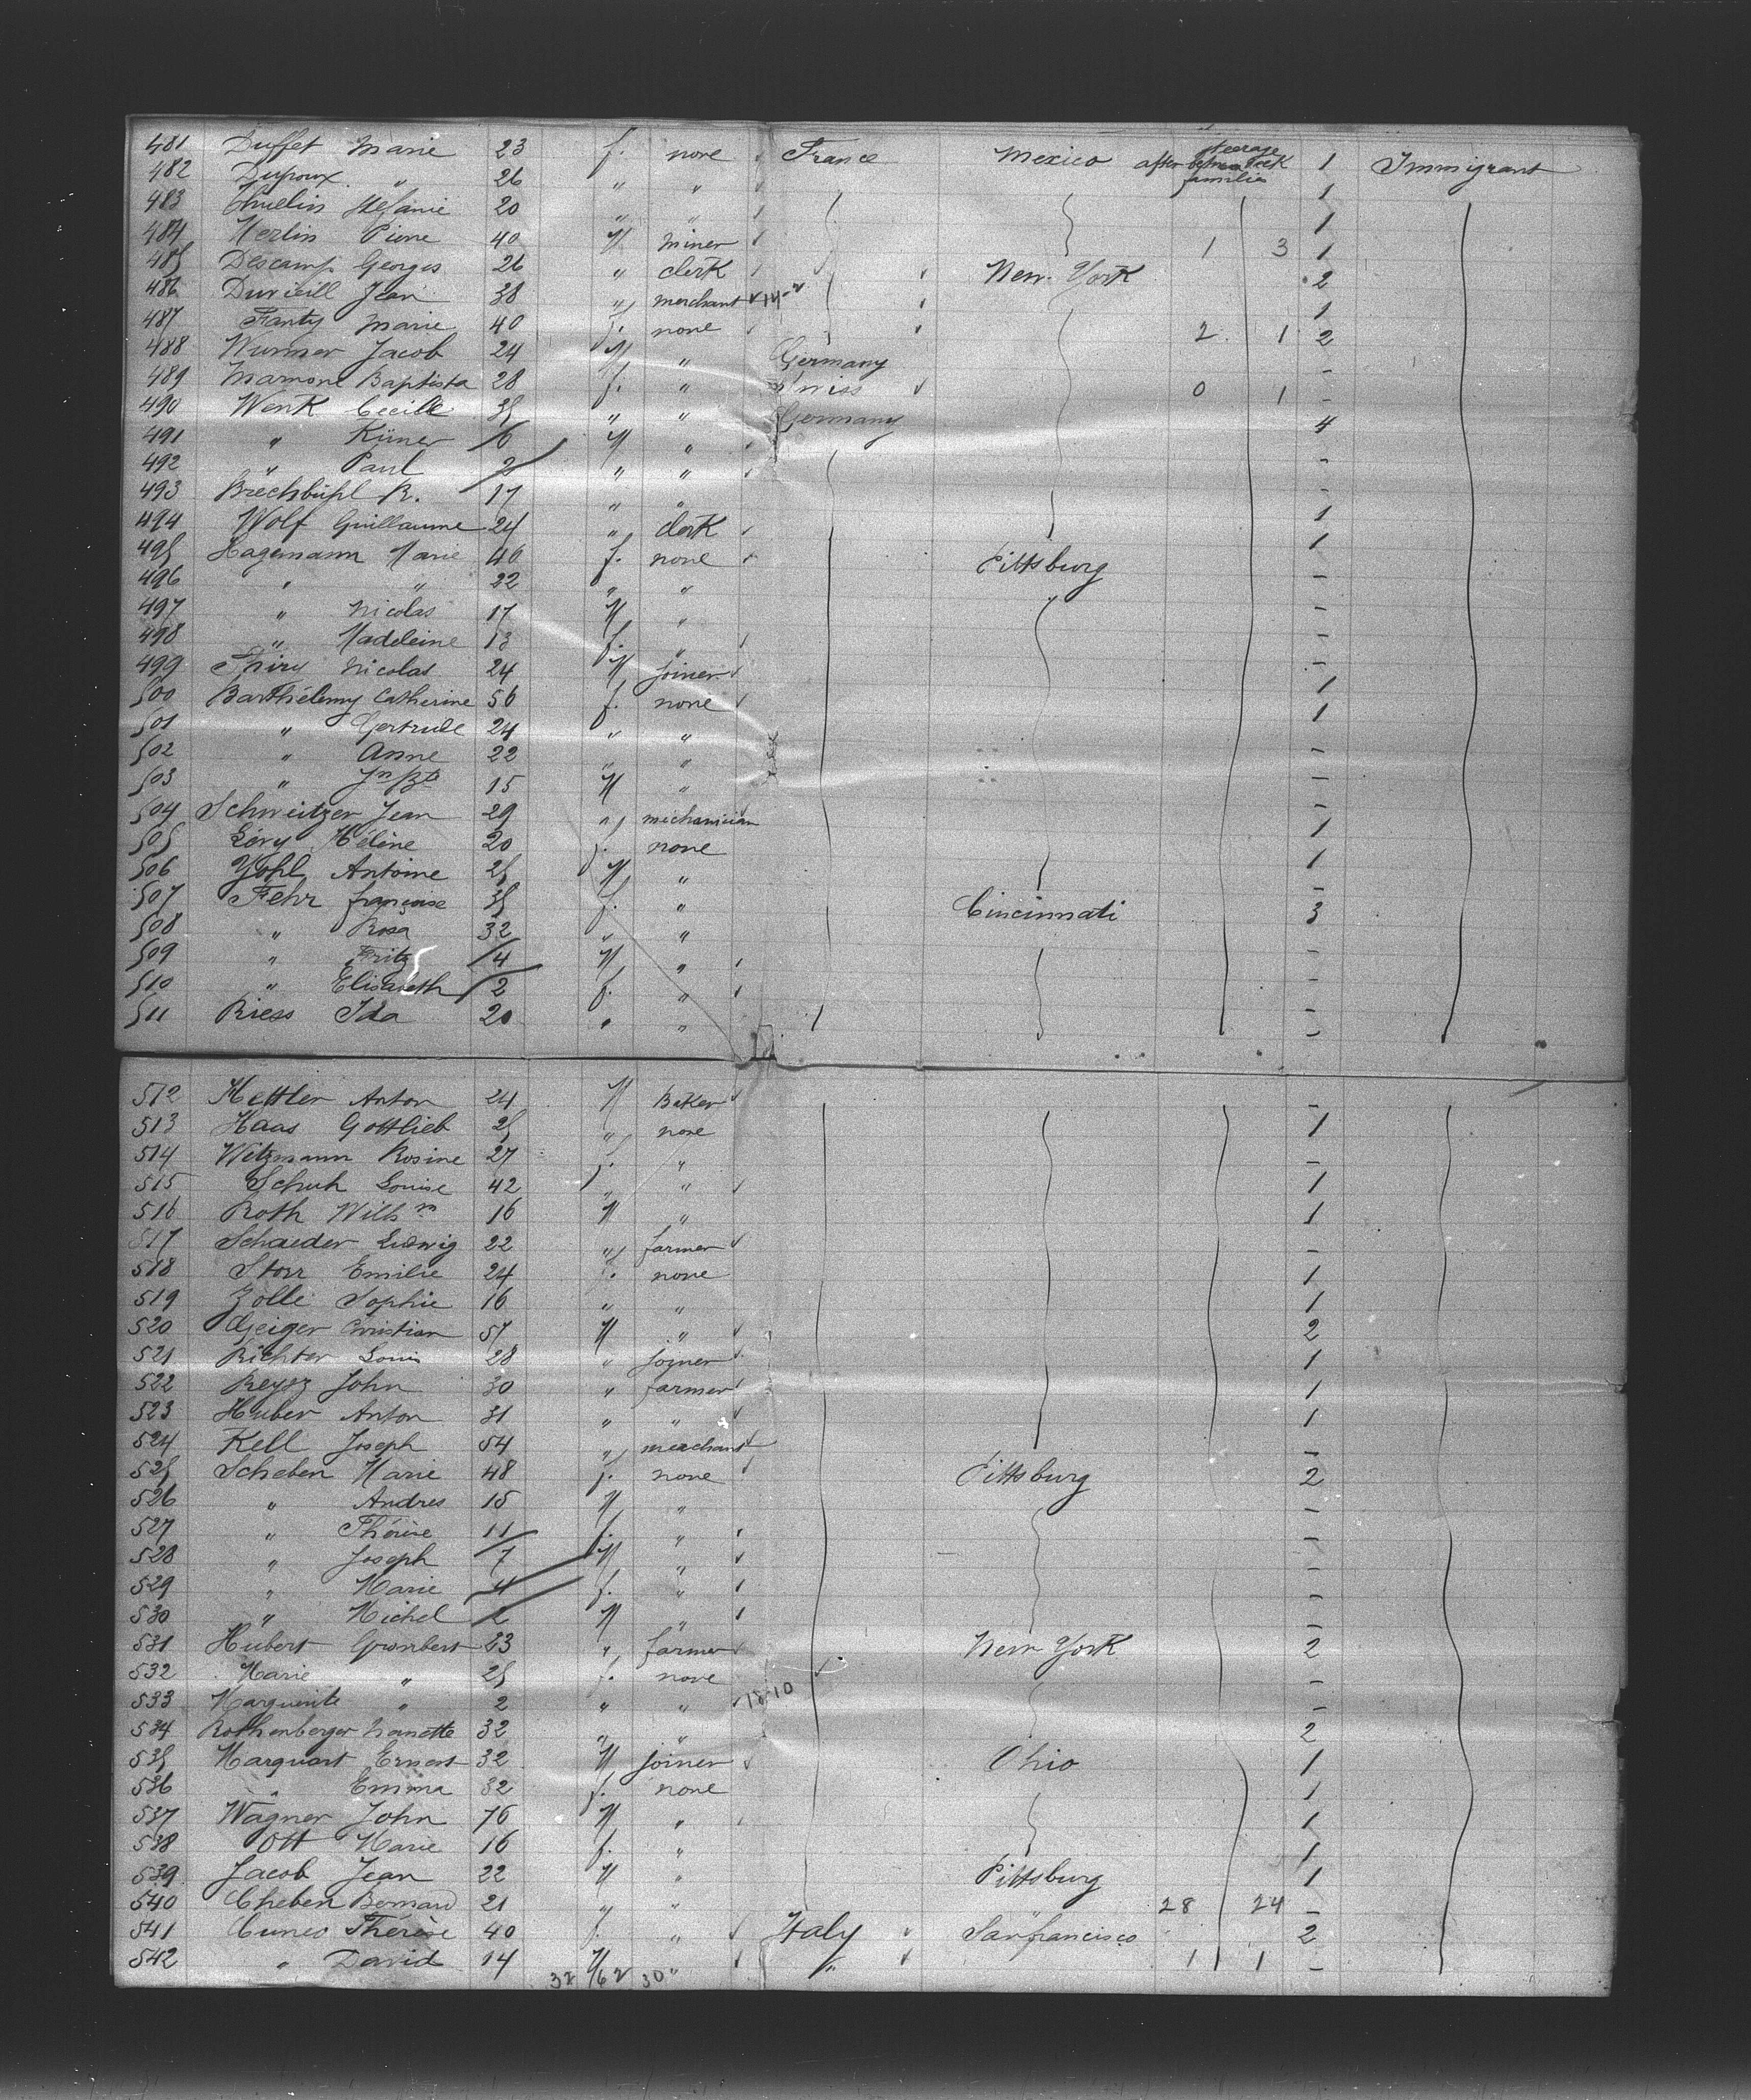 481 Duffet Marie 23 f. none France Mexico steerage after between deck families 1 Immigrant
482 Dupoux " 26 " " 1
483 Stefanie 20 " " 1
484 Merlin Pierre 40 M miner 1 3 1
485 Descamp Georges 26 " clerk New-York 2
486 Jean 38 " merchant 1
487 Fanty Marie 40 f. none 2 1 2
488 Wurmser Jacob 24 M " Germany -
489 Mamone Baptista 28 f. " Swiss 0 1 -
490 Wenk Cecile 35 " " Germany 4
491 " 6 M " -
492 " Paul 2 " " -
493 Brechbühl R. 17 " " 1
494 Wolf Guillaume 24 " clerk 1
495 Hagemann Marie 46 f. none Pittsburg -
496 " " 22 " " -
497 " Nicolas 17 M " -
498 " Madeleine 13 f. " -
499 Thiry Nicolas 24 M joiner 1
500 Barthélemy Catherine 56 f. none 1
501 " Gertrude 24 " " -
502 " Anne 22 " " -
503 " Jn Bte 15 M " -
504 Schweitzer Jean 29 " mechanician 1
505 Lévy Hélène 20 f. none 1
506 Antoine 25 M " -
507 Fehr françoise 35 f. " Cincinnati 3
508 " Rosa 32 " " -
509 " Fritz 4 M " -
510 " Elisabeth 2 f. " -
511 Riess Ida 20 " " -
512 Mettler Anton 24 M Baker -
513 Haas Gottlieb 25 " none 1
514 Witzmann Rosine 27 f. " -
515 Schuh Louise 42 " " 1
516 Roth Willm 16 M " 1
517 Schaeder Ludwig 22 " farmer -
518 Storr Emilie 24 f. none 1
519 Zolle Sophie 16 " " 1
520 Geiger Christian 57 M " 2
521 Richter Louis 28 " joyner 1
522 Reysz John 30 " farmer 1
523 Huber Anton 31 " " 1
524 Kell Joseph 54 " merchant -
525 Scheben Marie 48 f. none Pittsburg 2
526 " Andres 15 M " -
527 " Thérèse 11 f. " -
528 " Joseph 7 M " -
529 " Marie 4 f. " -
530 " Michel 2 M " -
531 Hubert Grombert 23 " farmer New York 2
532 Marie " 25 f. none -
533 Marguerite " 2 " " -
534 Rothenberger Nanette 32 " " 2
535 Marquart Ernest 32 M joiner Ohio 1
536 " Emma 32 f. none 1
537 Wagner John 76 M " 1
538 Ott Marie 16 f. " 1
539 Jacob Jean 22 M " Pittsburg 1
540 Cheben Bernard 21 " " 28 24 -
541 Cuneo Thérèse 40 f. " Italy San francisco 2
542 " David 14 M " " 1 1 -
32 62 30